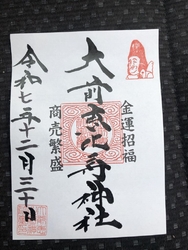 金運招福
大前恵比寿神社
商売繁盛
令和七年十二月三十日